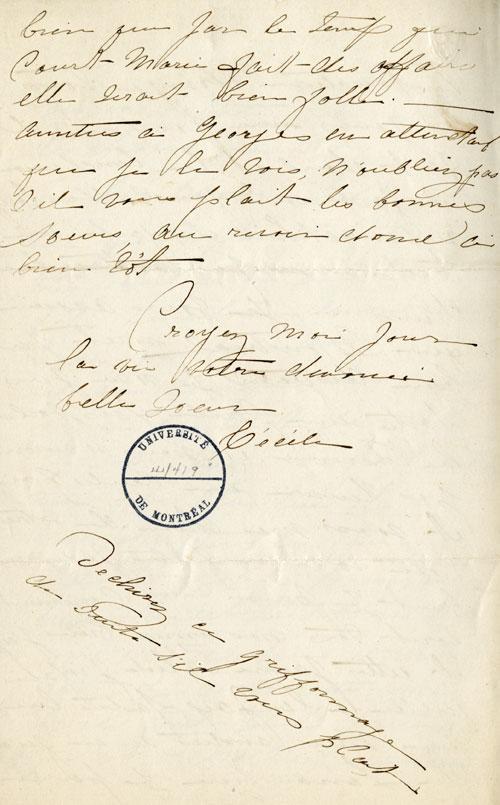 bien que par le temp qui
court Marie fait des affaire
elle serait bien folle. —
à Georges en attendant
que je le vois, N'oubliez pas
s'il vous plait les bonnes
soeurs, au revoir donc à
bien tôt
Croyez moi pour
la vie votre devouée
belle soeur
Cécile
UNIVERSITÉ
DE MONTRÉAL
Dechirez ce griffonnage
de suite s'il vous plait